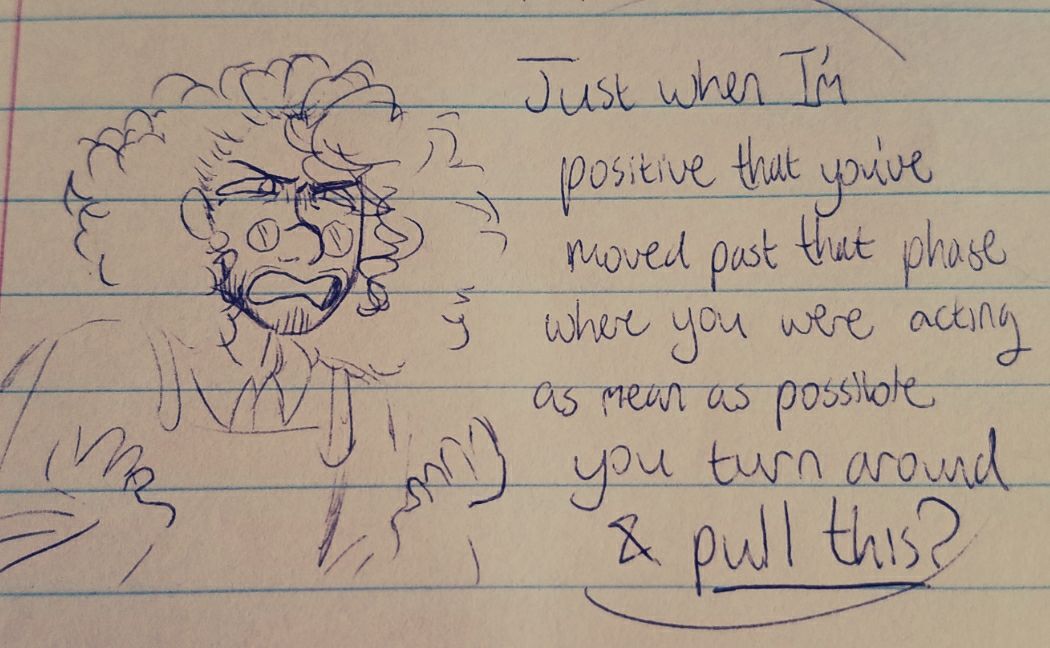 Just when I'm
positive that you've
moved past that phase
where you were acting
as mean as possible
you turn around
& pull this?